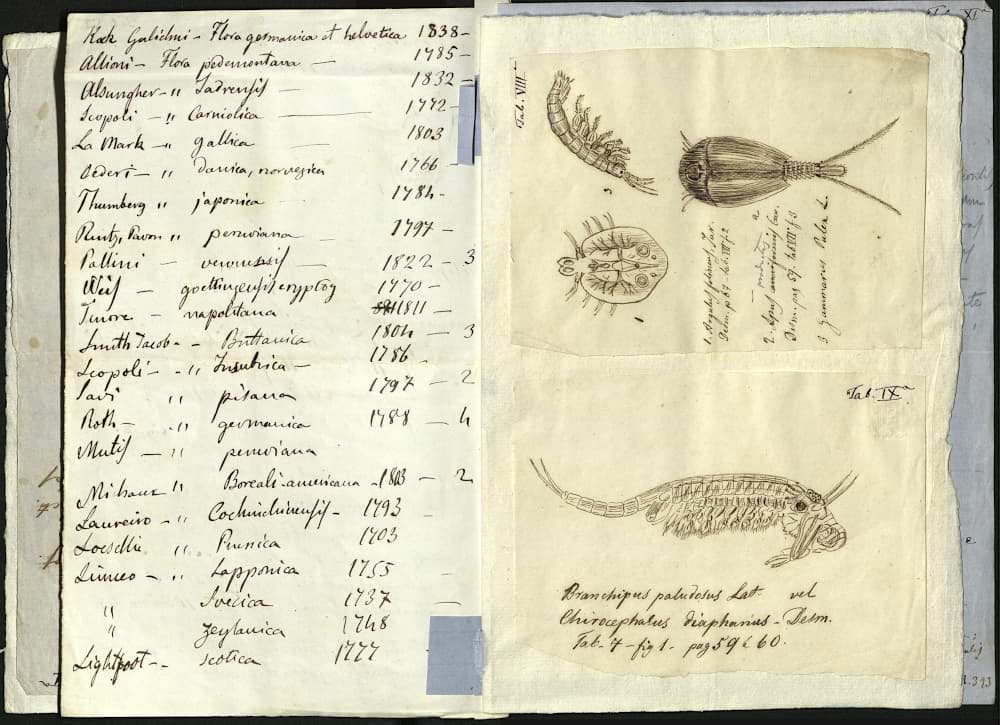 Kock Galichni - Flora germanica et helvetica 1838-
Allioni - Flora pedemontana - 1785-
Alsungher - " Jadrensis - 1832-
Scopoli - " Carniolica 1772-
La Mark - " gallica - 1803
Oederi - " danica, norvegica 1766-
Thumberg " japonica 1784-
Ruitz, Pavon " peruviana - 1797-
Pollini - veronensis - 1822 - 3
Weis - goettingensis cryptog 1770-
Tenore - napolitana 1811-
Smith Jacob - - Brittanica 1804 - 3
Scopoli - - " Insubrica - 1786-
Savi " pisana 1797 - 2
Roth - " germanica 1788 - 4
Mutis - " peruviana
Michaux " Boreali-americana - 1803 - 2
Laureiro - " Cochinchinensis - 1793 -
Loeselii " Prusica 1703
Linneo - " Lapponica 1755 -
" Svecica 1737 -
" Zeylanica 1748
Lightfoot - - scotica 1777
Tab. VIII
3
2
1
1. Argulus foliaceus Jur.
Desm. p 57. tab. VII f. 2
2. Apus productus
cancriformis Lac.
Desm. pag 57. tab. VII f. 3
3 Gammarus Pulex L.
Tab. IXa
Branchipus paludosus Lat. vel
Chirocephalus diaphanus - Desm.
Tab. 7 - fig 1. pag 59 è 60.
Tab. XIa
1.313